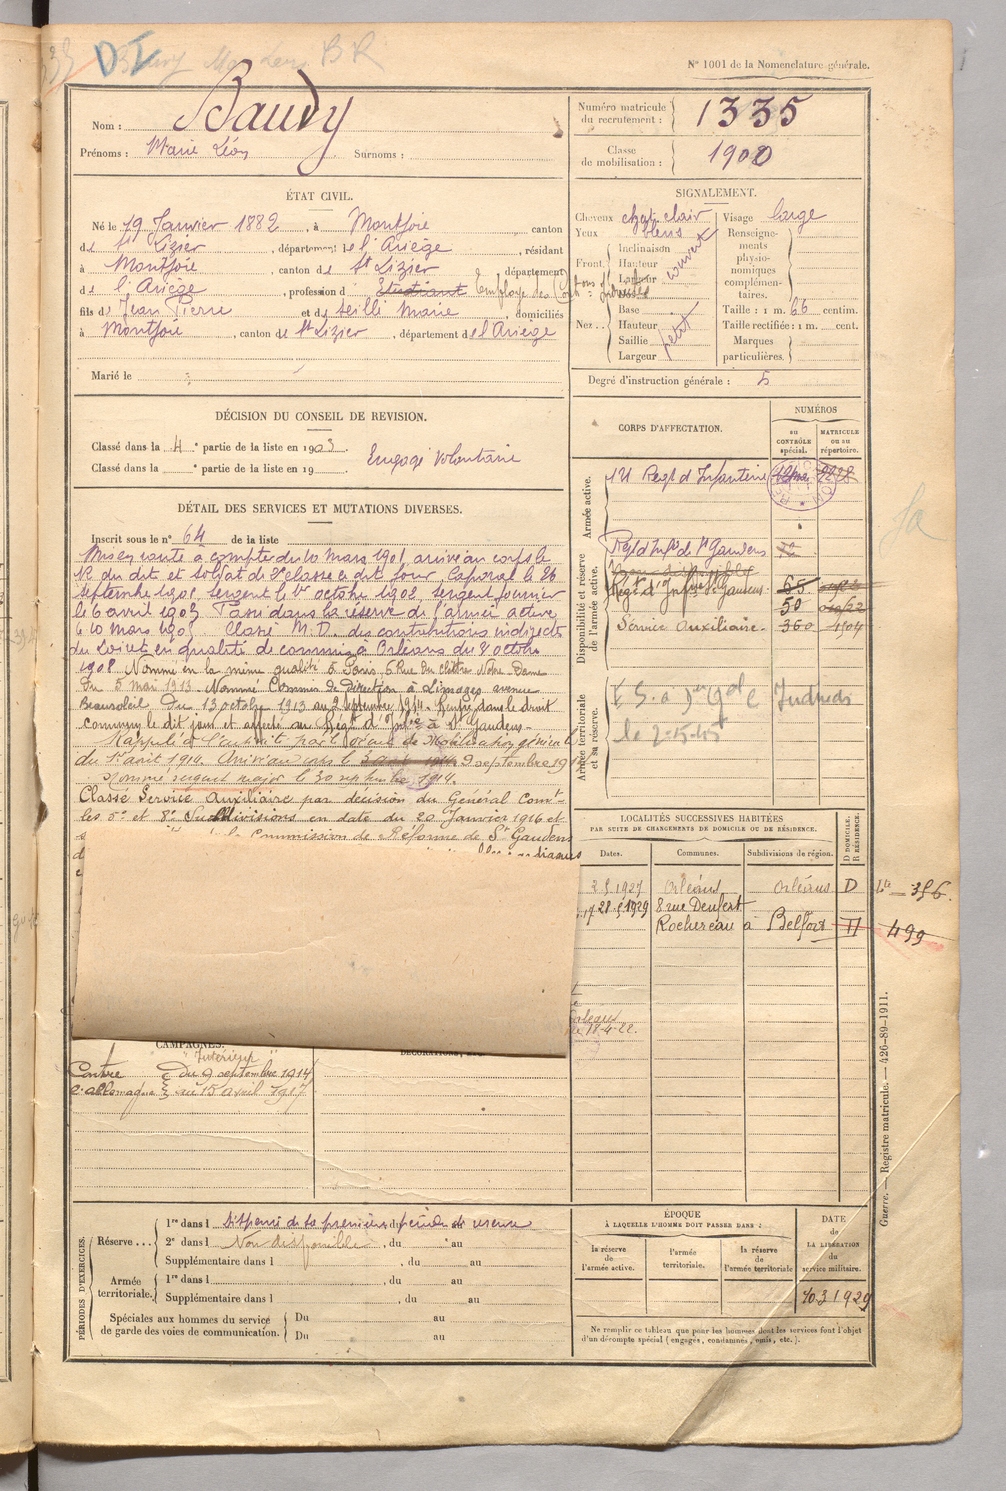 N° 1001 de la Nomenclature générale.
Nom : Baudy
Prénoms : Marie Léon Surnoms :
Numéro matricule du recrutement : 1335
Classe de mobilisation : 1900
ÉTAT CIVIL.
Né le 19 Janvier 1882, à Montjoie canton
de St Lizier, département de l'Ariège, résidant
à Montjoie, canton de St Lizier, département
de l'Ariège, profession d Etudiant Employé des Cont: Indirectes
fils de Jean Pierre et de Seilli Marie, domiciliés
à Montjoie, canton de St Lizier, département de l'Ariège
Marié le
SIGNALEMENT.
Cheveux chat clair Visage large
Yeux bleus
Front. Inclinaison Hauteur Largeur couvert
Nez... Base Hauteur Saillie Largeur petit
Renseignements physionomiques complémentaires.
Taille : 1 m. 66 centim.
Taille rectifiée : 1 m. cent.
Marques particulières.
Degré d'instruction générale : 5
DÉCISION DU CONSEIL DE REVISION.
Classé dans la 4e partie de la liste en 1903.
Classé dans la e partie de la liste en 19
Engagé Volontaire
DÉTAIL DES SERVICES ET MUTATIONS DIVERSES.
Inscrit sous le n° 64 de la liste
Mis en route à compter du 10 mars 1901, arrivé au corps le
12 du dit et soldat de 2e classe le dit jour, Caporal le 26
septembre 1901, sergent le 1er octobre 1902, sergent fourrier
le 6 avril 1903. Passé dans la réserve de l'armée active
le 10 mars 1905. Classé M.D. des contributions indirectes
du Loiret en qualité de commis à Orléans du 8 octobre
1908 Nommé en la même qualité à Paris, 6 Rue du Cloître Notre Dame
du 5 mai 1913 Nommé Commis de Direction à Limoges avenue
Beausoleil Du 13 octobre 1913 au 2 septembre 1914. Rentré dans le droit
commun le dit jour et affecté au Régt d'Infie à St Gaudens
Rappelé à l'activité par Décret de Mobilisation générale
du 1er août 1914. Arrivé au corps le 9 septembre 1914
Nommé sergent major le 30 septembre 1914.
Classé Service Auxiliaire par décision du Général Comt
les 5e et 8e Subdivisions en date du 20 Janvier 1916 et
la Commission de Réforme de St Gaudens
CORPS D'AFFECTATION.
NUMÉROS
au CONTRÔLE spécial.
MATRICULE ou au répertoire.
Armée active.
Régt d'Infanterie
Disponibilité et réserve de l'armée active.
Régt d'Infie de St Gaudens
Non disponible
Régt d'Infie St Gaudens 65
50
Service Auxiliaire 360 1904
Armée territoriale et sa réserve.
le 2-5-45
LOCALITÉS SUCCESSIVES HABITÉES
PAR SUITE DE CHANGEMENTS DE DOMICILE OU DE RÉSIDENCE.
Dates. Communes. Subdivisions de région. D DOMICILE. R RÉSIDENCE.
1927 Orléans Orléans D
28.5.1929 8 rue Denfert
Rochereau à Belfort
396
499
18-4-22.
CAMPAGNES.
"Intérieur"
Contre l'allemagne
du 9 septembre 1914
au 15 avril 1917
PÉRIODES D'EXERCICES.
Réserve... 1re dans l Dispensé de sa première période de réserve
2e dans l Non disponible, du au
Supplémentaire dans l, du au
Armée territoriale. 1re dans l, du au
Supplémentaire dans l, du au
Spéciales aux hommes du service de garde des voies de communication. Du au
Du au
ÉPOQUE
À LAQUELLE L'HOMME DOIT PASSER DANS :
la réserve de l'armée active.
l'armée territoriale.
la réserve de l'armée territoriale
DATE de LA LIBÉRATION du service militaire.
10 3 1929
Ne remplir ce tableau que pour les hommes dont les services font l'objet
d'un décompte spécial (engagés, condamnés, omis, etc.).
Guerre. — Registre matricule. — 426-89-1911.